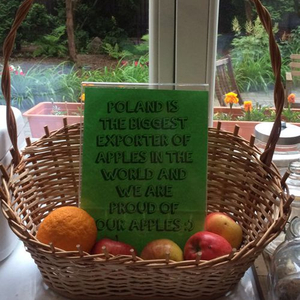 POLAND IS
THE BIGGEST
EXPORTER OF
APPLES IN THE
WORLD AND
WE ARE
PROUD OF
OUR APPLES :)